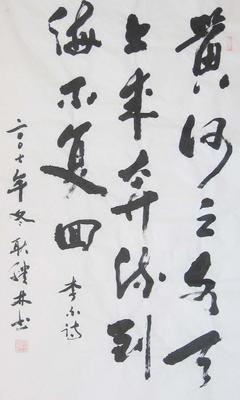 黄河之水天
上来奔流到
海不复回
李白诗
二〇〇七年冬耿林书